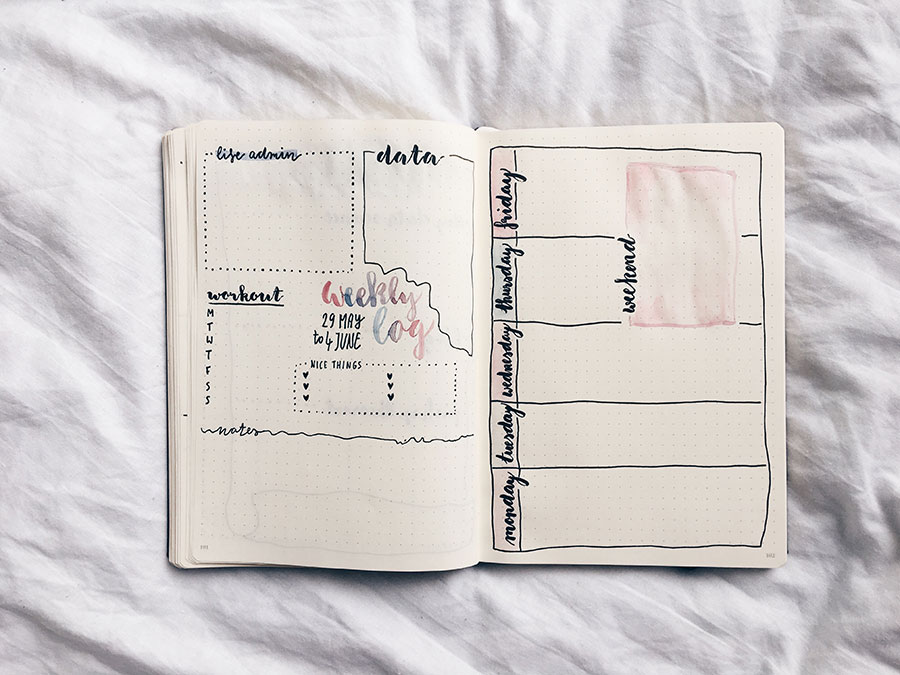 life admin
data
workout
M
T
W
T
F
S
S
weekly
log
29 MAY
to 4 JUNE
NICE THINGS
notes
friday
thursday
wednesday
tuesday
monday
weekend